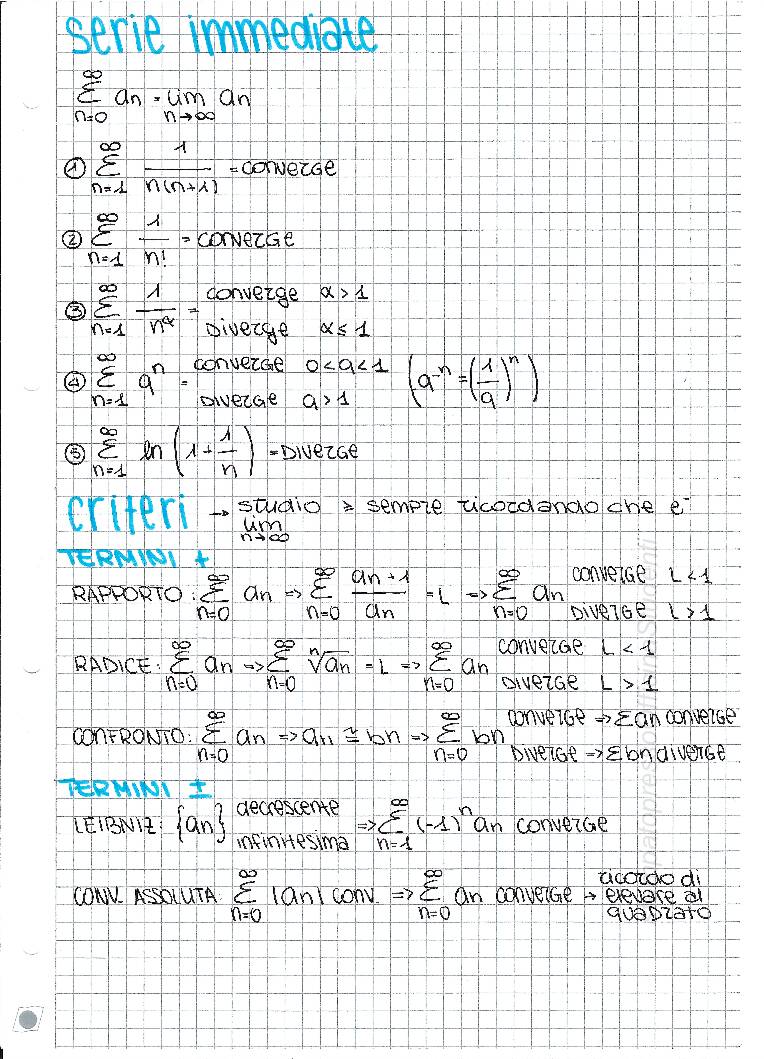 serie immediate
∞∑n=0 an = lim n→∞ an
① ∞∑n=1 1/n(n+1) = converge
② ∞∑n=1 1/n! = converge
③ ∞∑n=1 1/n^α = converge α > 1
diverge α ≤ 1
④ ∞∑n=1 q^n = converge 0 < q < 1 (q^-n = (1/q)^n)
diverge q > 1
⑤ ∞∑n=1 ln (1 + 1/n) = diverge
criteri → studio ≥ sempre ricordando che e'
lim n→∞
TERMINI +
RAPPORTO: ∞∑n=0 an => ∞∑n=0 an+1/an = L => ∞∑n=0 an converge L < 1
diverge L > 1
RADICE: ∞∑n=0 an => ∞∑n=0 n√an = L => ∞∑n=0 an converge L < 1
diverge L > 1
CONFRONTO: ∞∑n=0 an => an ≅ bn => ∞∑n=0 bn converge => ∑an converge
diverge => ∑bn diverge
TERMINI ±
LEIBNIZ: {an} decrescente
infinitesima => ∞∑n=1 (-1)^n an converge
CONV. ASSOLUTA: ∞∑n=0 |an| conv. => ∞∑n=0 an converge → ricordo di
elevare al
quadrato